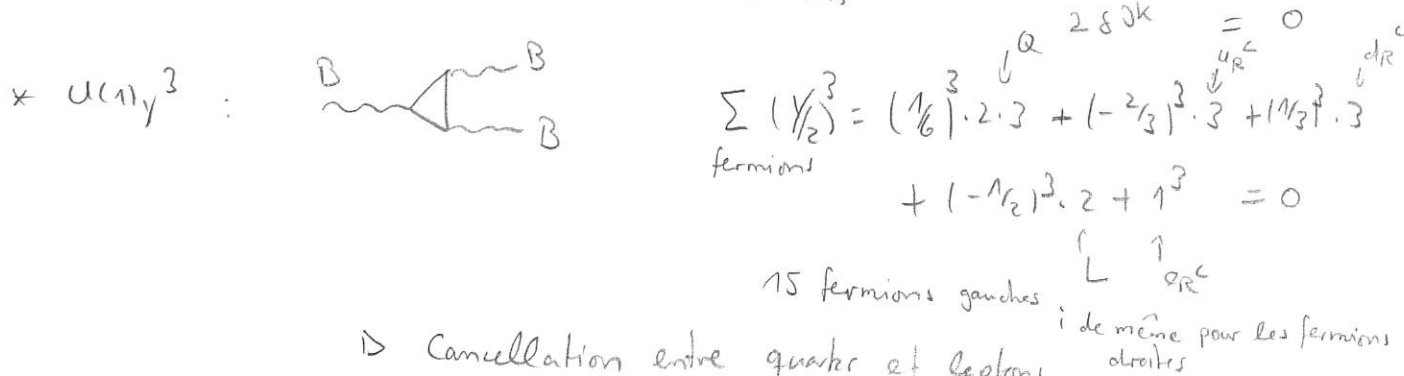 2 δJK = 0
* U(1)_Y^3 : B B B
Q u_R^c d_R^c
∑ (Y/2)^3 = (1/6)^3 · 2 · 3 + (-2/3)^3 · 3 + (1/3)^3 · 3
fermions
+ (-1/2)^3 · 2 + 1^3 = 0
L e_R^c
15 fermions gauches ; de même pour les fermions
droites
▷ Cancellation entre quarks et leptons